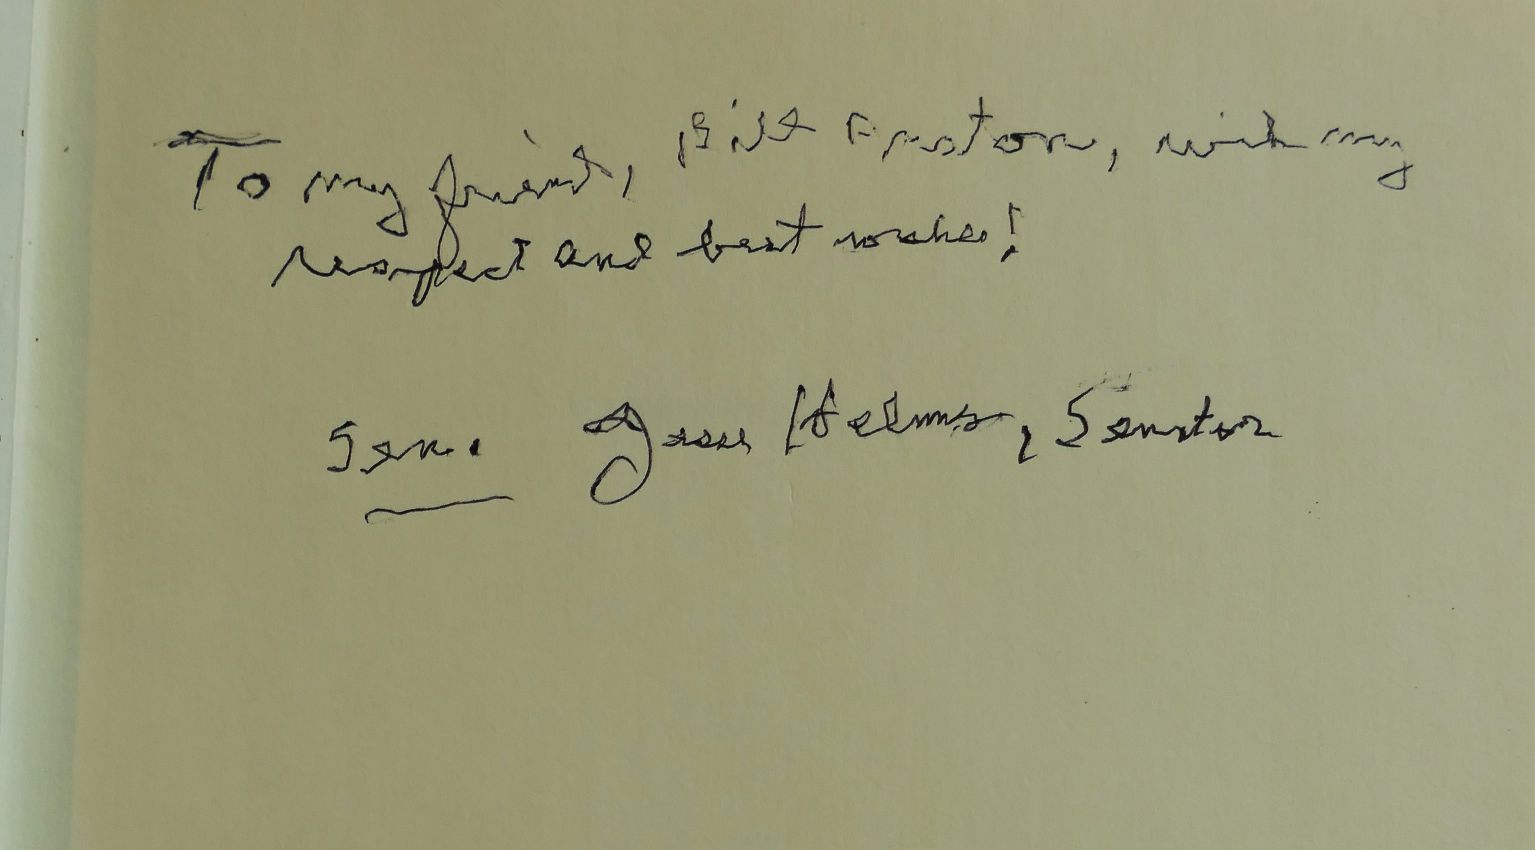 To my friend, Bill with my
respect and best wishes!
Sen. Jesse Helms, Senator